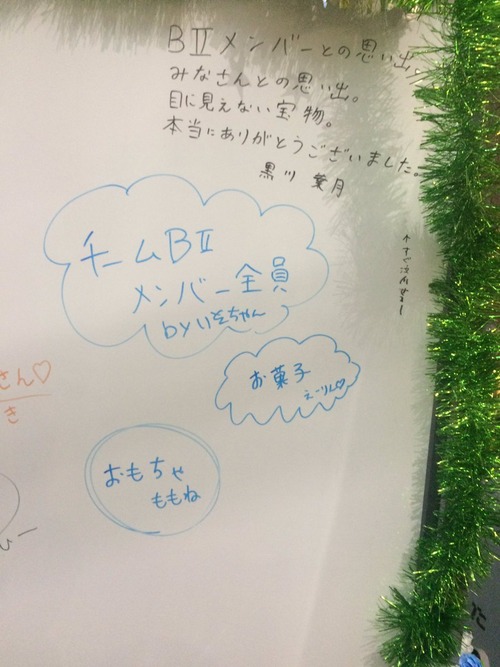 BⅡメンバーとの思い出。
みなさんとの思い出。
目に見えない宝物。
本当にありがとうございました。
黒川 葉月
チームBⅡ
メンバー全員
byいそちゃん
お菓子
えーりん♡
おもちゃ
ももね
さん♡
き